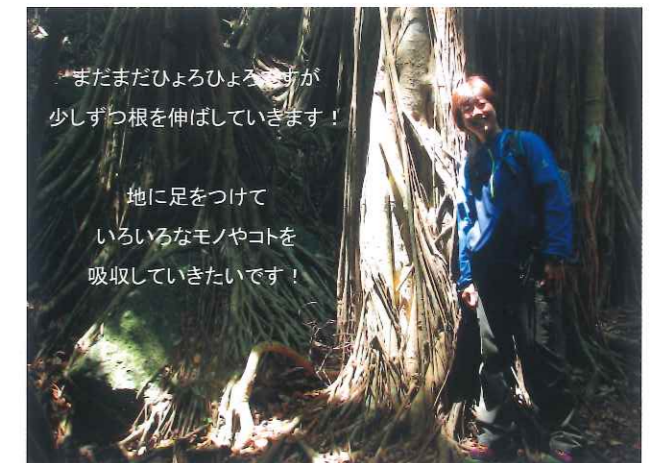 まだまだひょろひょろですが
少しずつ根を伸ばしていきます！
地に足をつけて
いろいろなモノやコトを
吸収していきたいです！